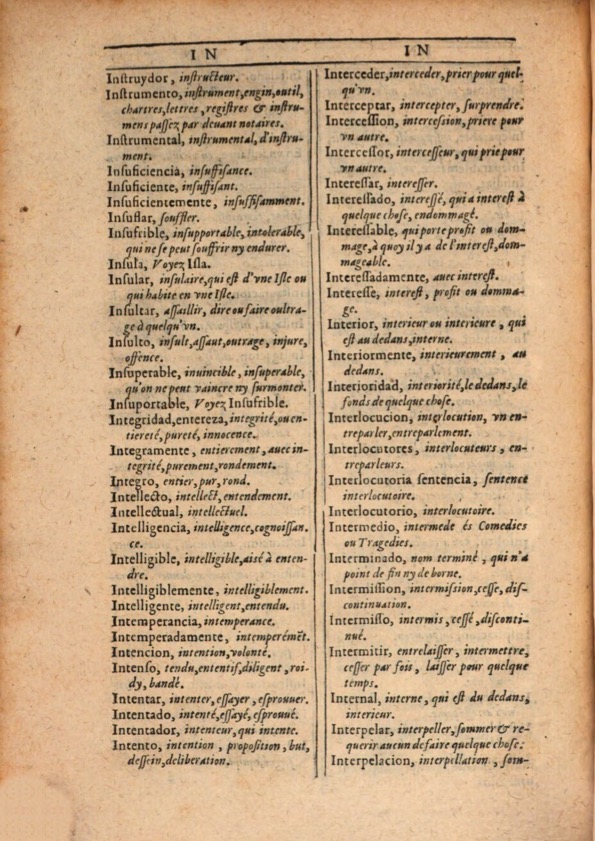 IN
Inſtruydor, inſtructeur.
Inſtrumento, inſtrument, engin, outil,
chartres, lettres, regiſtres & inſtru-
mens paſſez par deuant notaires.
Inſtrumental, inſtrumental, d'inſtru-
ment.
Inſuficiencia, inſuffiſance.
Inſuficiente, inſuffiſant.
Inſuficientemente, inſuffiſamment.
Inſuflar, ſouffler.
Inſufrible, inſupportable, intolerable,
qui ne ſe peut ſouffrir ny endurer.
Inſula, Voyez Iſla.
Inſular, inſulaire, qui eſt d'vne Iſle ou
qui habite en vne Iſle.
Inſultar, aſſaillir, dire ou faire oultra-
ge à quelqu'vn.
Inſulto, inſult, aſſaut, outrage, injure,
offence.
Inſuperable, inuincible, inſuperable,
qu'on ne peut vaincre ny ſurmonter.
Inſuportable, Voyez Inſufrible.
Integridad, entereza, integrité, ou en-
tiereté, pureté, innocence.
Integramente, entierement, auec in-
tegrité, purement, rondement.
Integro, entier, pur, rond.
Intellecto, intellect, entendement.
Intellectual, intellectuel.
Intelligencia, intelligence, cognoiſſan-
ce.
Intelligible, intelligible, aisé à enten-
dre.
Intelligiblemente, intelligiblement.
Intelligente, intelligent, entendu.
Intemperancia, intemperance.
Intemperadamente, intemperémẽt.
Intencion, intention, volonté.
Intenſo, tendu, ententif, diligent, roi-
dy, bandé.
Intentar, intenter, eſſayer, eſprouuer.
Intentado, intenté, eſſayé, eſprouué.
Intentador, intenteur, qui intente.
Intento, intention, propoſition, but,
deſſein, deliberation.
IN
Interceder, interceder, prier pour quel-
qu'vn.
Interceptar, intercepter, ſurprendre.
Interceſſion, interceſſion, priere pour
vn autre.
Interceſſor, interceſſeur, qui prie pour
vn autre.
Intereſſar, intereſſer.
Intereſſado, intereſſé, qui a intereſt à
quelque choſe, endommagé.
Intereſſable, qui porte profit ou dom-
mage, à quoy il y a de l'intereſt, dom-
mageable.
Intereſſadamente, auec intereſt.
Intereſſe, intereſt, profit ou domma-
ge.
Interior, interieur ou interieure, qui
eſt au dedans, interne.
Interiormente, interieurement, au
dedans.
Interioridad, interiorité, le dedans, le
fonds de quelque choſe.
Interlocucion, interlocution, vn en-
treparler, entreparlement.
Interlocutores, interlocuteurs, en-
treparleurs.
Interlocutoria ſentencia, ſentence
interlocutoire.
Interlocutorio, interlocutoire.
Intermedio, intermede és Comedies
ou Tragedies.
Interminado, nom terminé, qui n'a
point de fin ny de borne.
Intermiſſion, intermiſſion, ceſſe, diſ-
continuation.
Intermiſſo, intermis, ceſſé, diſconti-
nué.
Intermitir, entrelaiſſer, intermettre,
ceſſer par fois, laiſſer pour quelque
temps.
Internal, interne, qui eſt du dedans,
interieur.
Interpelar, interpeller, ſommer & re-
querir aucun de faire quelque choſe.
Interpelacion, interpellation, ſom-